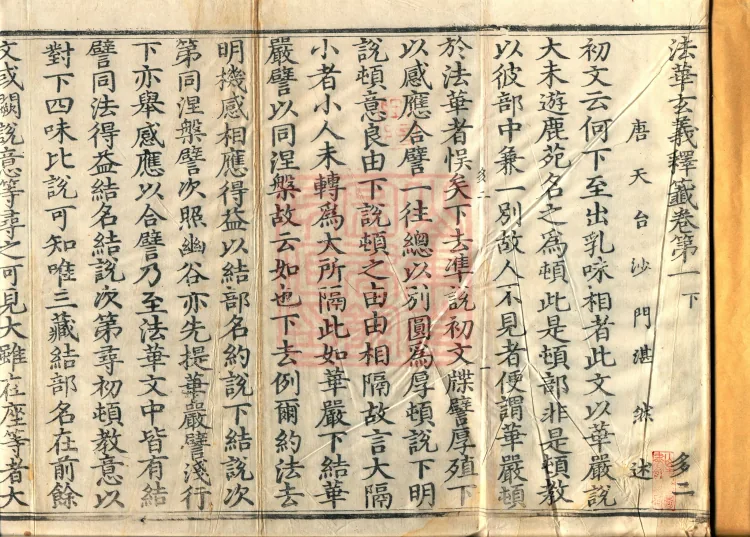 法華玄義釋籤卷第一下
唐天台沙門湛然述
多二
初文云何下至出乳味相者此文以華嚴說
大未遊鹿苑名之為頓此是頓部非是頓教
以彼部中兼一別故人不見者便謂華嚴頓
多二
於法華者悮矣下去準說初文牒譬厚殖下
以感應合譬一往總以別圓為厚頓說下明
說頓意良由下說頓之由由相隔故言大隔
小者小人未轉為大所隔此如華嚴下結華
嚴譬以同涅槃故云如也下去例爾約法去
明機感相應得益以結部名約說下結說次
第同涅槃譬次照幽谷亦先提華嚴譬淺行
下亦舉感應以合譬乃至法華文中皆有結
譬同法得益結名結說次第尋初頓教意以
對下四味比說可知唯三藏結部名在前餘
文或闕說意等尋之可見大雖在座等者大